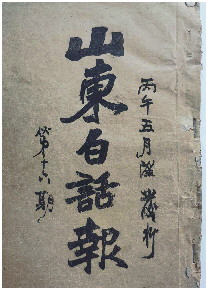 丙午五月發行
山東白話報
第十六期